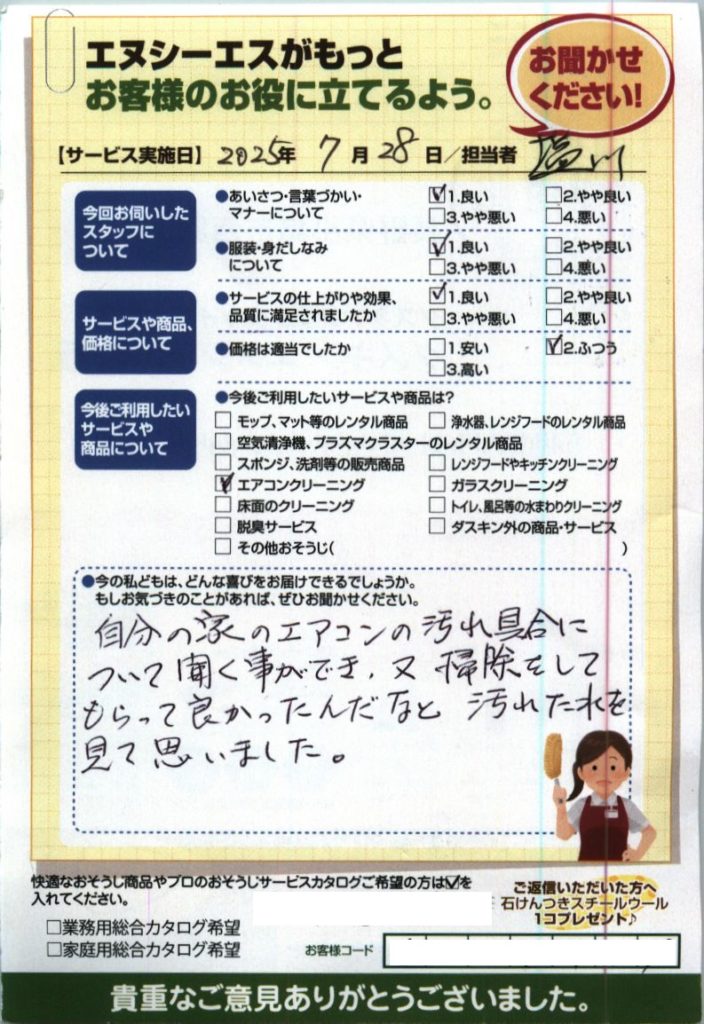 エヌシーエスがもっと
お客様のお役に立てるよう。
お聞かせ
ください!
【サービス実施日】 2025年 7月 28日/担当者 塩川
今回お伺いした
スタッフに
ついて
●あいさつ・言葉づかい・
マナーについて
☑1.良い □2.やや良い
□3.やや悪い □4.悪い
●服装・身だしなみ
について
☑1.良い □2.やや良い
□3.やや悪い □4.悪い
サービスや商品、
価格について
●サービスの仕上がりや効果、
品質に満足されましたか
☑1.良い □2.やや良い
□3.やや悪い □4.悪い
●価格は適当でしたか
□1.安い ☑2.ふつう
□3.高い
今後ご利用したい
サービスや
商品について
●今後ご利用したいサービスや商品は?
□ モップ、マット等のレンタル商品 □ 浄水器、レンジフードのレンタル商品
□ 空気清浄機、プラズマクラスターのレンタル商品
□ スポンジ、洗剤等の販売商品 □ レンジフードやキッチンクリーニング
☑ エアコンクリーニング □ ガラスクリーニング
□ 床面のクリーニング □ トイレ、風呂等の水まわりクリーニング
□ 脱臭サービス □ ダスキン外の商品・サービス
□ その他おそうじ( )
●今の私どもは、どんな喜びをお届けできるでしょうか。
もしお気づきのことがあれば、ぜひお聞かせください。
自分の家のエアコンの汚れ具合に
ついて聞く事ができ、又掃除をして
もらって良かったんだなと 汚れた水を
見て思いました。
快適なおそうじ商品やプロのおそうじサービスカタログご希望の方は☑を
入れてください。
□業務用総合カタログ希望
□家庭用総合カタログ希望
ご返信いただいた方へ
石けんつきスチールウール
1コプレゼント♪
お客様コード
貴重なご意見ありがとうございました。